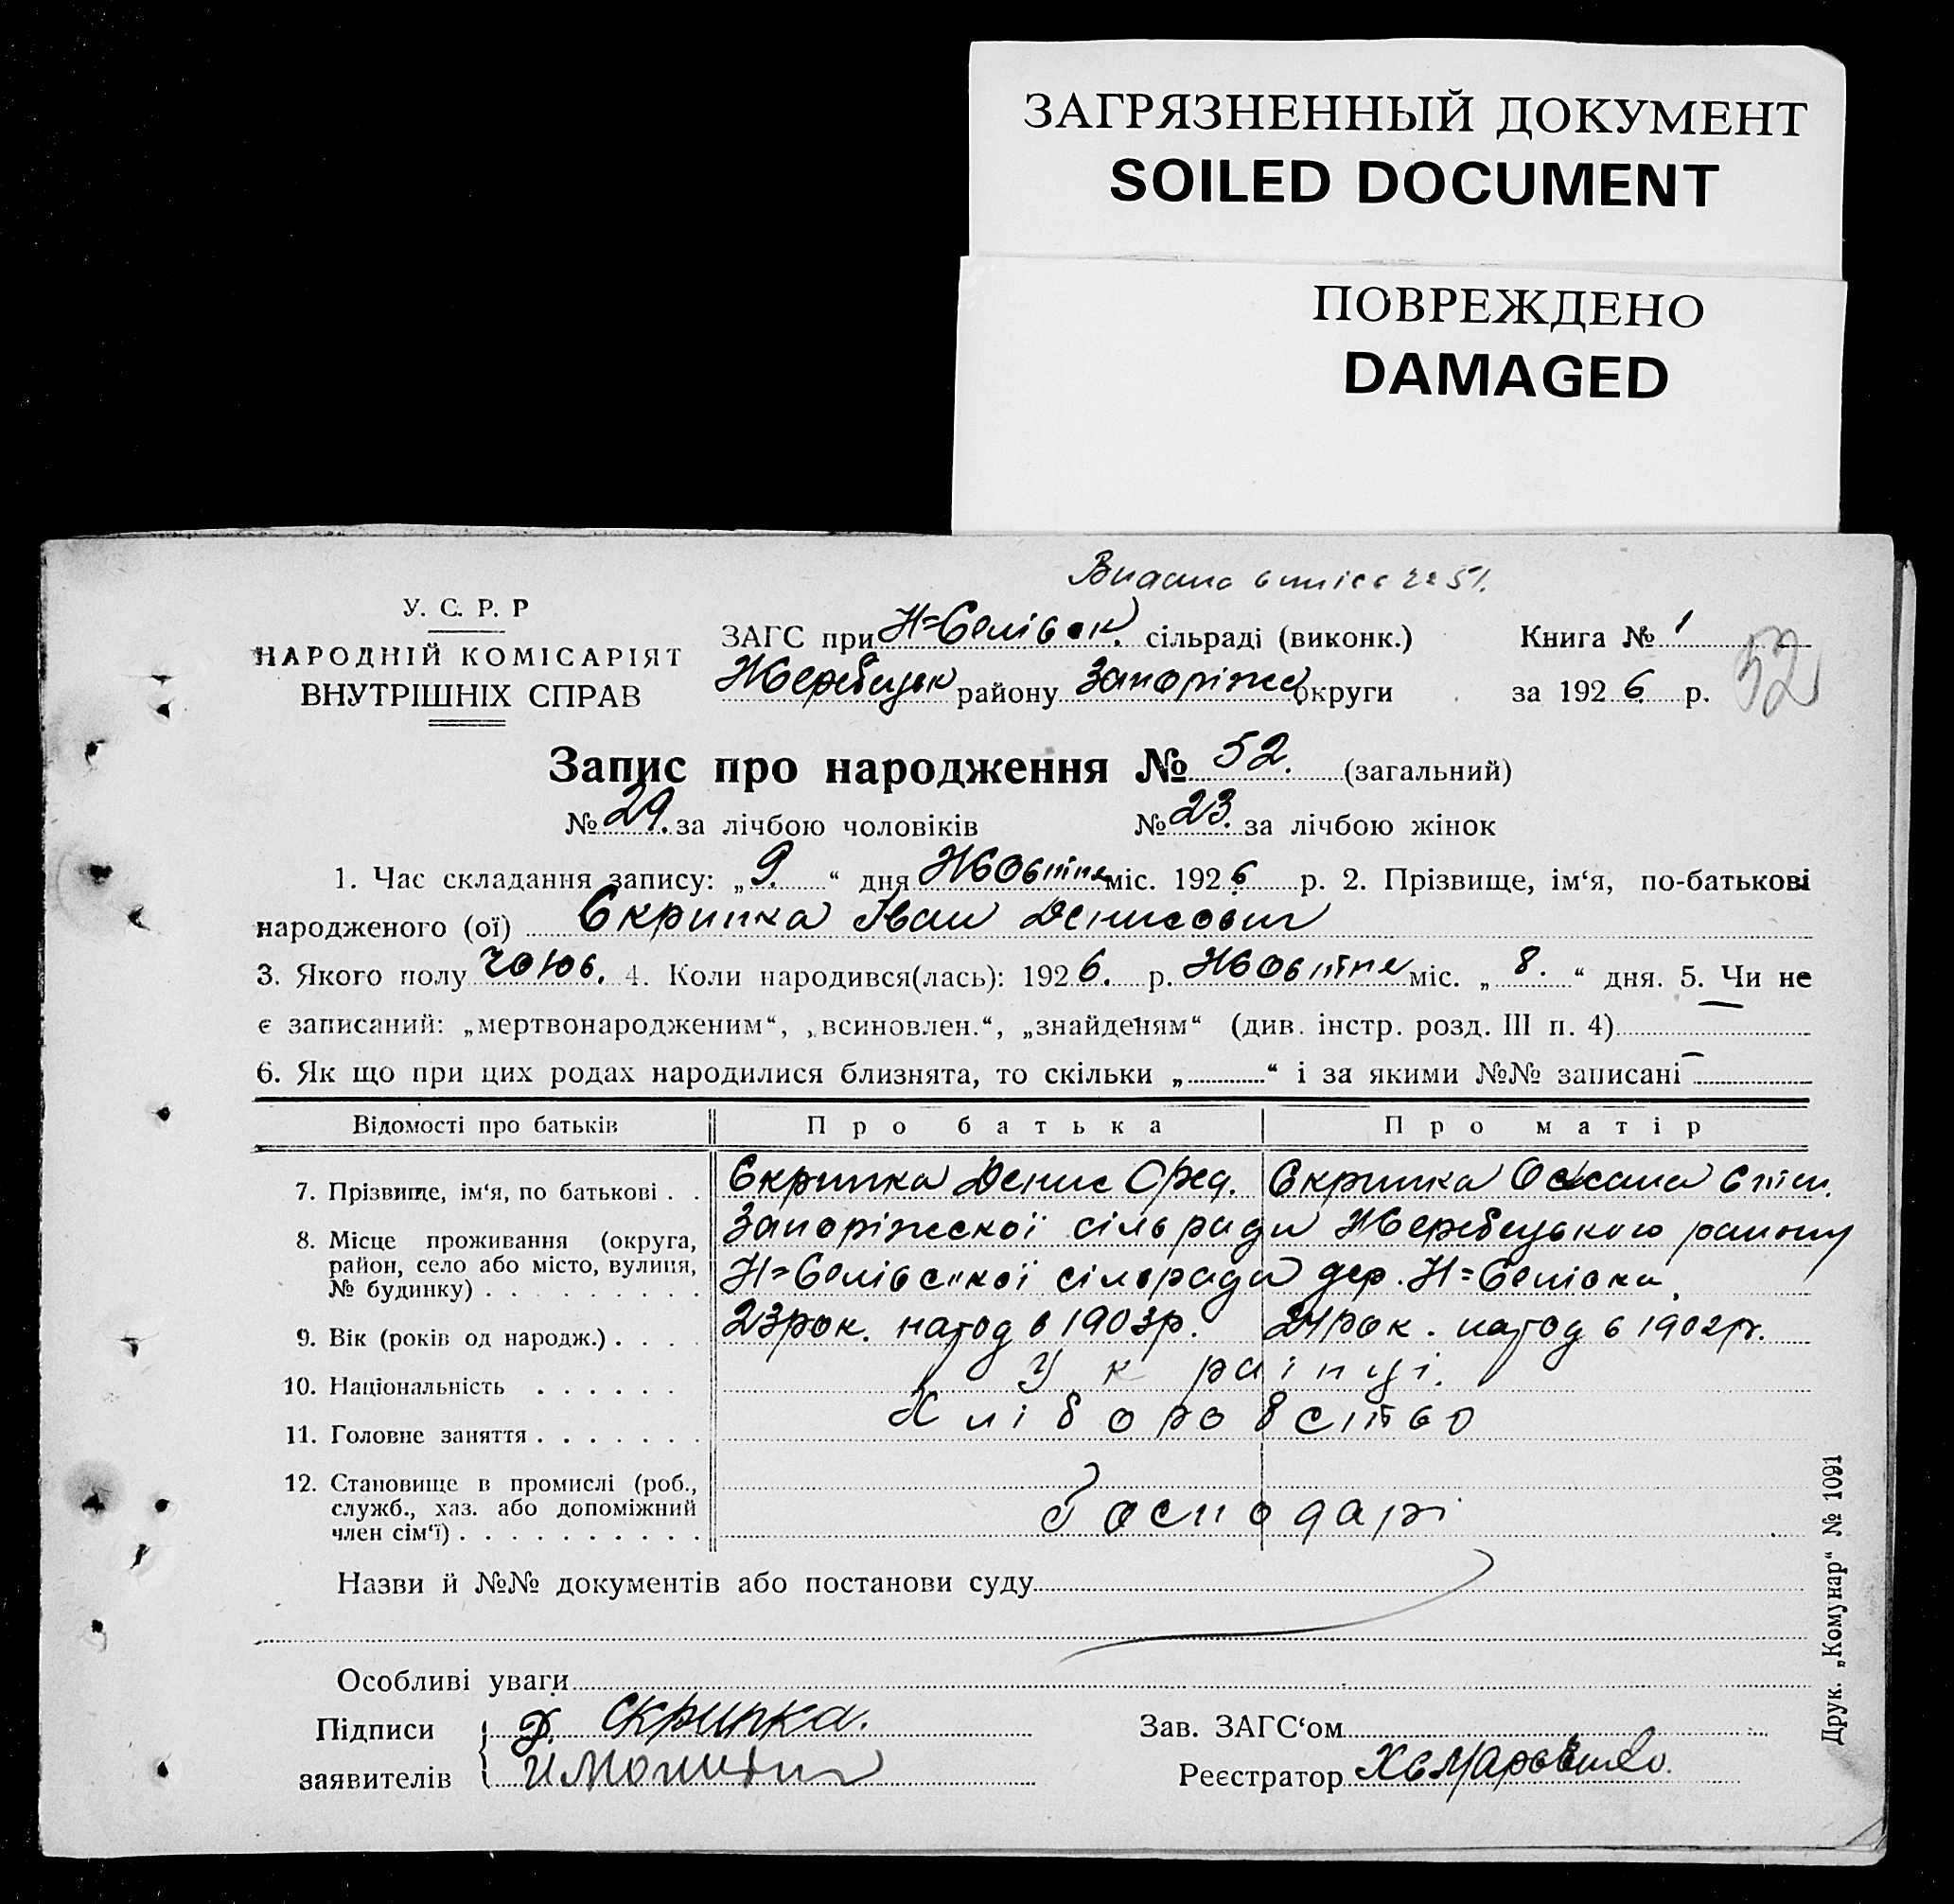 ЗАГРЯЗНЕННЫЙ ДОКУМЕНТ
SOILED DOCUMENT
ПОВРЕЖДЕНО
DAMAGED
У. С. Р. Р
НАРОДНІЙ КОМІСАРІЯТ
ВНУТРІШНІХ СПРАВ
ЗАГС при Н=Селівск. сільраді (виконк.) Книга № 1
Жеребецьк району Запоріжс округи за 1926 р. 52
Запис про народження № 52. (загальний)
№ 29. за лічбою чоловіків № 23. за лічбою жінок
1. Час складання запису: „9.“ дня Жовтня міс. 1926 р. 2. Прізвище, ім‘я, по-батькові
народженого (ої) Скрипка Іван Денисович
3. Якого полу чолов. 4. Коли народився(лась): 1926. р. Жовтня міс. „8.“ дня. 5. Чи не
є записаний: „мертвонародженим“, „всиновлен.“, „знайденям“ (див. інстр. розд. III п. 4)
6. Як що при цих родах народилися близнята, то скільки „ “ і за якими №№ записані
Відомості про батьків Про батька Про матір
7. Прізвище, ім‘я, по батькові . . Скрипка Денис Фед. Скрипка Оксана Степ.
8. Місце проживання (округа, район, село або місто, вулиця, № будинку) Запоріжскої сільради Жеребецького району
Н=Селівської сільради дер. Н=Селівка,
9. Вік (років од народж.) . . . . 23 рок. народ в 1903р. 24 рок. народ в 1902р.
10. Національність . . . . . . Українці.
11. Головне заняття . . . . . . . Хліборобство
12. Становище в промислі (роб., служб., хаз. або допоміжний член сім‘ї) . . . . . . . . . . Господарі
Назви й №№ документів або постанови суду
Особливі уваги
Підписи Д. Скрипка. Зав. ЗАГС‘ом
заявителів Реєстратор
Друк. „Комунар“ № 1091